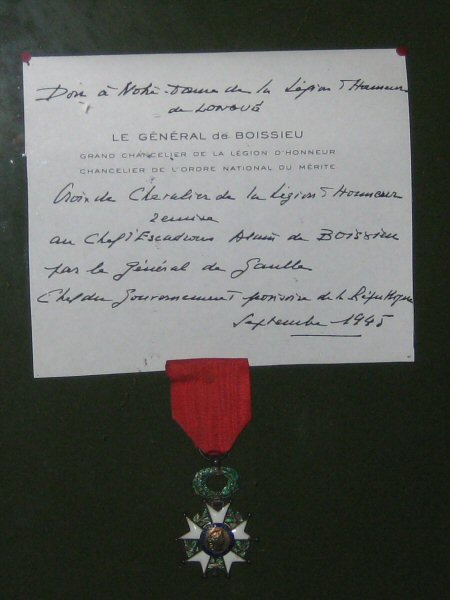 Don à Notre-Dame de la Légion d'Honneur
de LONGUÉ
LE GÉNÉRAL de BOISSIEU
GRAND CHANCELIER DE LA LÉGION D'HONNEUR
CHANCELIER DE L'ORDRE NATIONAL DU MÉRITE
Croix de Chevalier de la Légion d'Honneur
remise
au Chef d'Escadrons Alain de BOISSIEU
par le Général de Gaulle
Chef du Gouvernement provisoire de la République
Septembre 1945